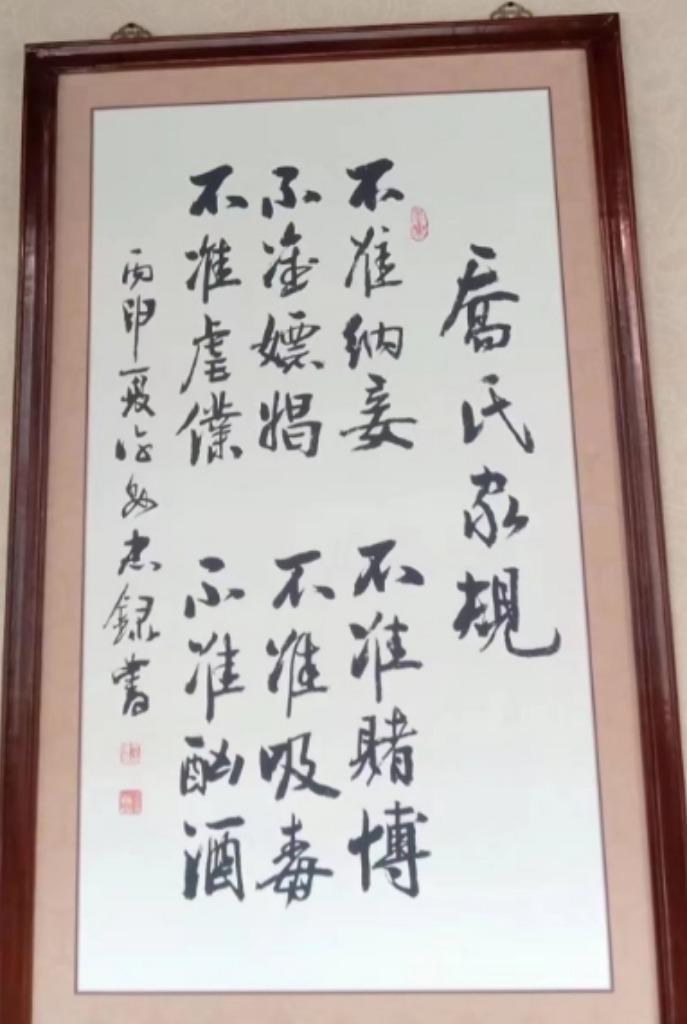 喬氏家規
不准纳妾 不准賭博
不准嫖娼 不准吸毒
不准虐僕 不准酗酒
丙申夏 忠録書